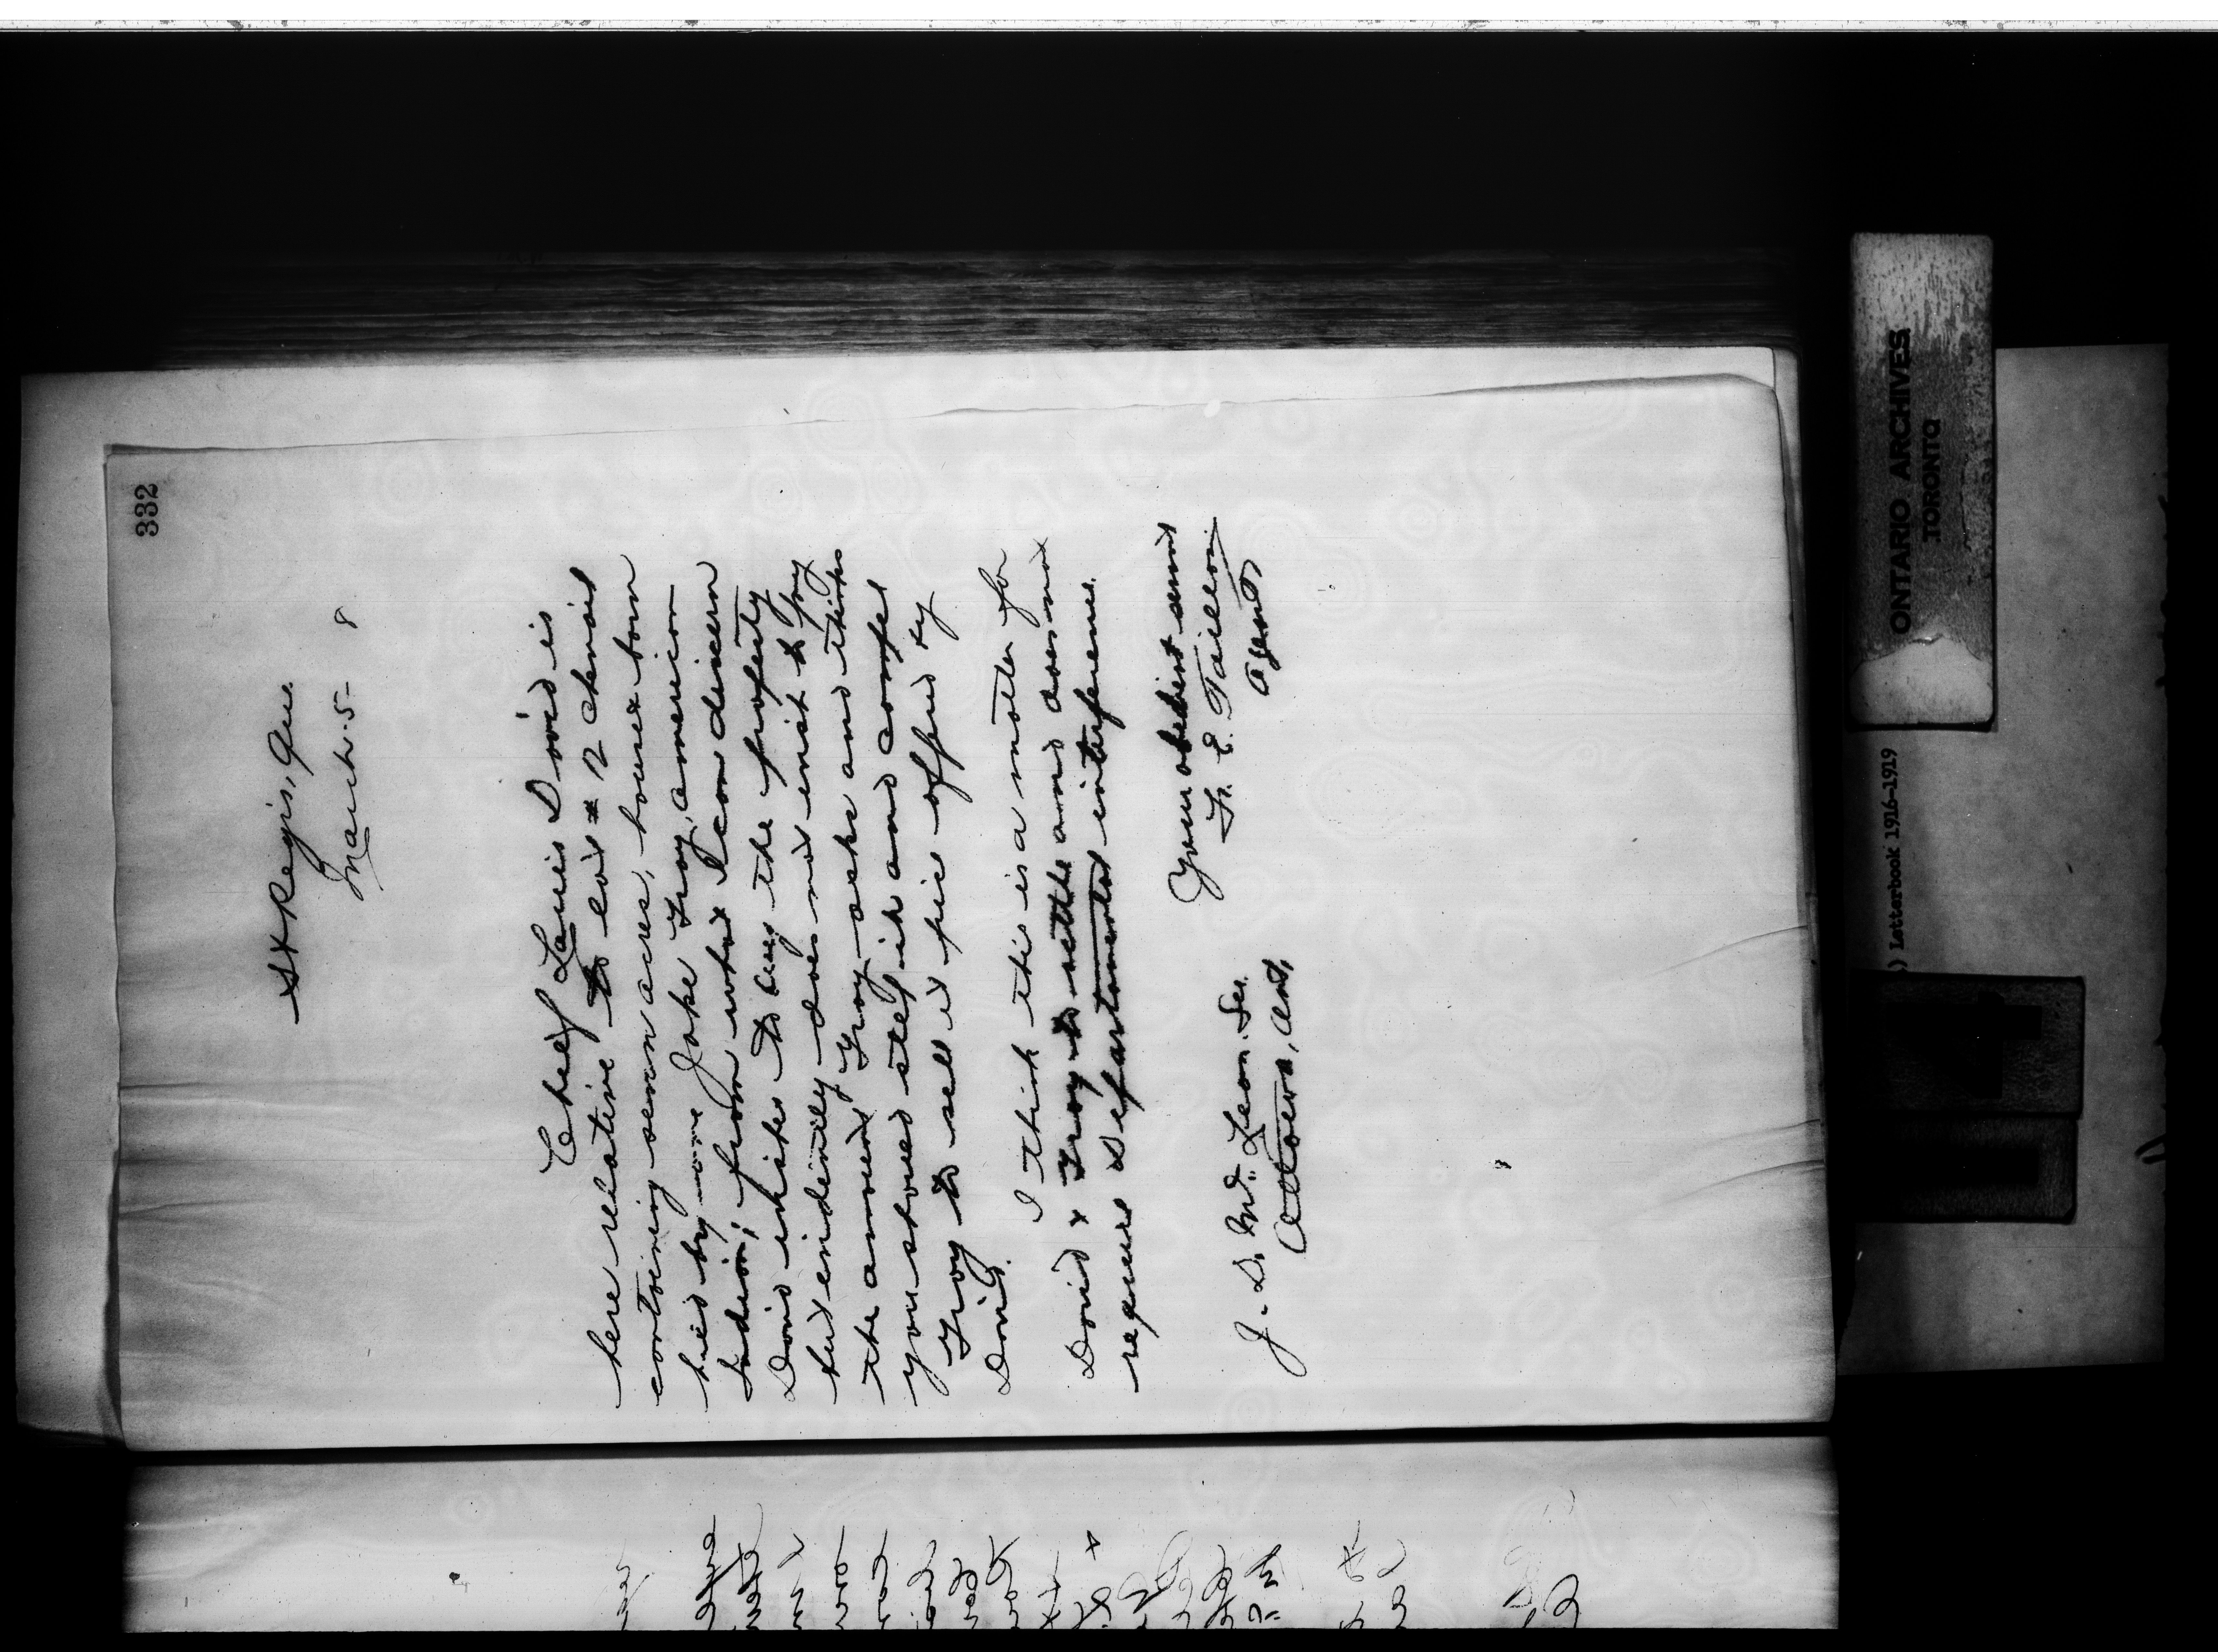 332
St Regis, Que.
March. 5- 8
Chief Louis David is
here relative to lot # 12 Chenail
containing seven acres, house & barn
held by one Jake Gray, American
Indian; from what I can discern
David wishes to buy the property
but evidently does not wish to pay
the amount Gray asks and thinks
you should step in and compel
Gray to sell at price offered by
David.
I think this is a matter for
David & Gray to settle and does not
require Departmental interference.
Your obedient servant
F. E. Taillon
Agent
J. D. McLean. Sec.
Ottawa, Ont.
ONTARIO ARCHIVES
TORONTO
) Letterbook 1916-1919